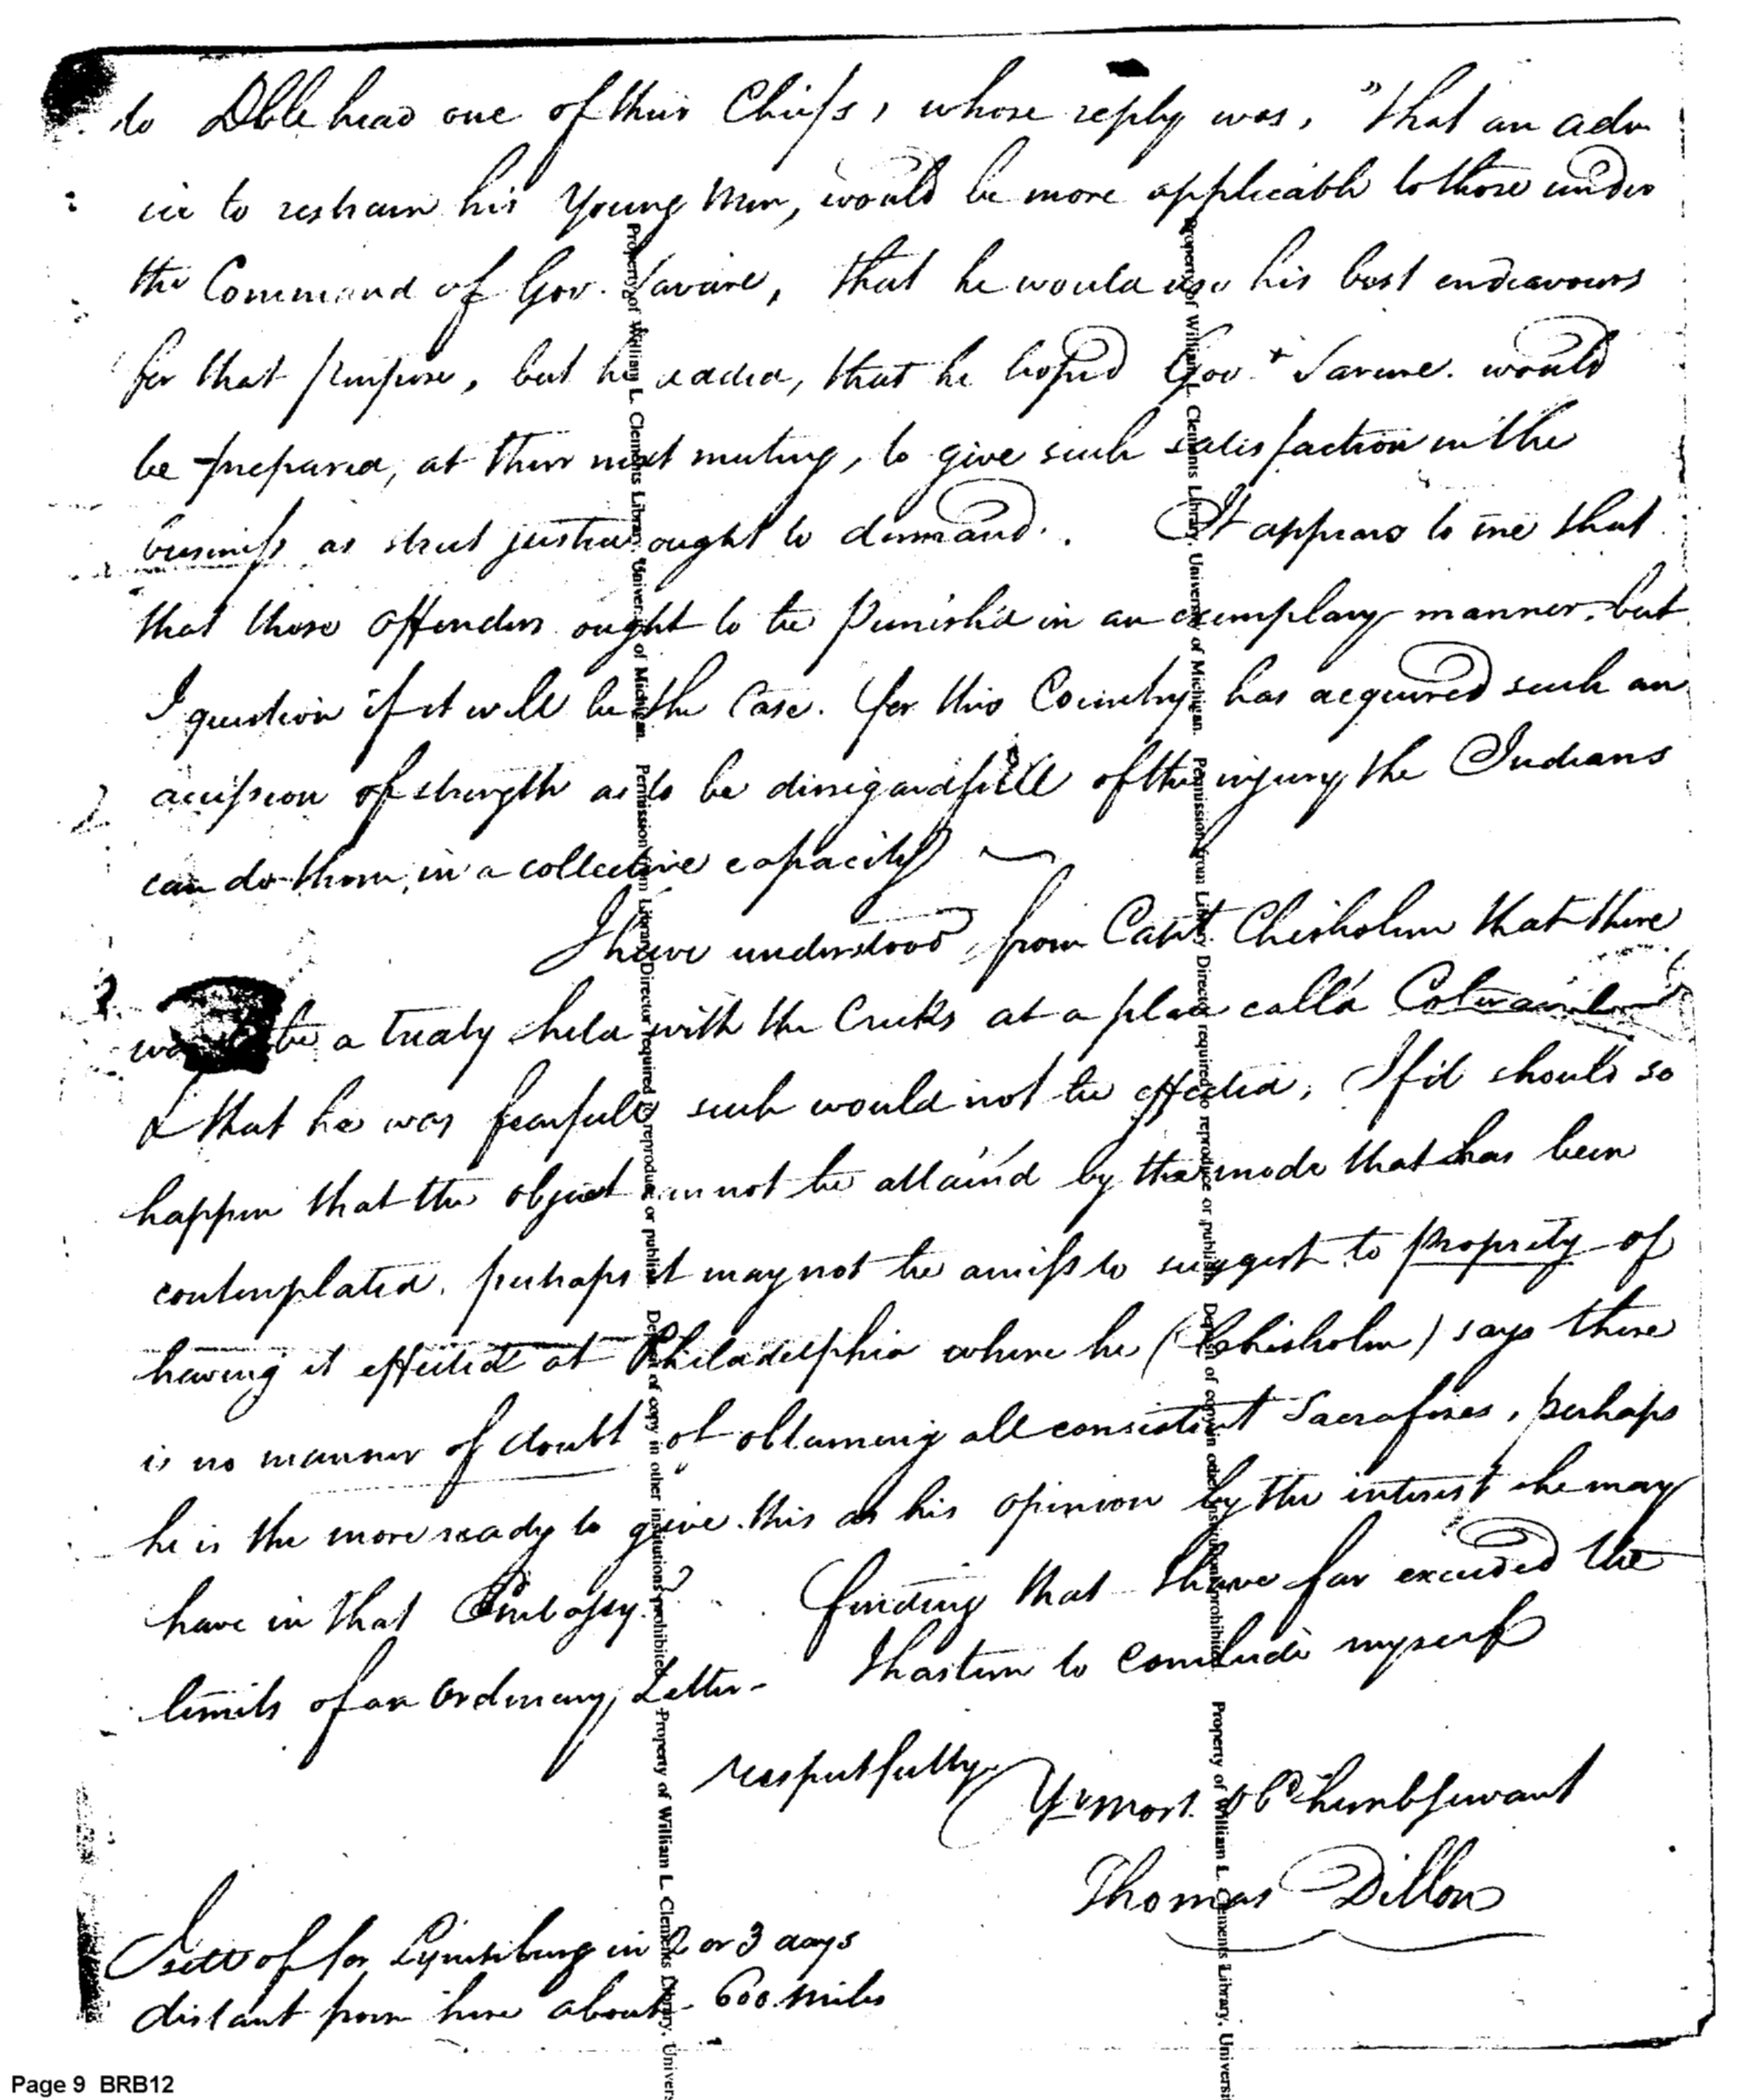 to Dble head one of their Chiefs, whose reply was, "that an adv
ice to restrain his Young Men, would be more applicable to those under
the Command of Gov. Savire, that he would use his best endeavours
for that purpose, but he added, that he hoped Gov.r Savire. would
be prepared, at their next meeting, to give such satisfaction in the
business as strict justice ought to demand. It appears to me that
that those offenders ought to be Punish'd in an exemplary manner, but
I question if it will be the Case. for this Country has acquired such an
accession of strength as to be disregardfull of the injury the Indians
can do them, in a collective capacity
I have understood from Capt. Chisholm that there
be a treaty held with the Creeks at a place call'd
& that he was fearfull such would not be effected, If it should so
happen that the object cannot be attain'd by the mode that has been
contemplated. perhaps it may not be amiss to suggest to propriety of
having it effected at Philadelphia where he (Chisholm) says there
is no manner of doubt of obtaining all consistent Sacrafises, perhaps
he is the more ready to give this as his opinion by the interest he may
have in that Embassy? finding that I have far exceeded the
limits of an Ordinary Letter - I hasten to Conclude myself
respectfully
Yr most Obt humb servant
Thomas Dillon
I sett off for Lynchburg in 2 or 3 days
distant from here about 600 miles
Property of William L. Clements Library, University of Michigan. Permission from Library Director required to reproduce or publish. Deposit of copy in other institutions prohibited. Property of William L. Clements Library, Univers
Property of William L. Clements Library, University of Michigan. Permission from Library Director required to reproduce or publish. Deposit of copy in other institutions prohibited. Property of William L. Clements Library, Universi
Page 9 BRB12